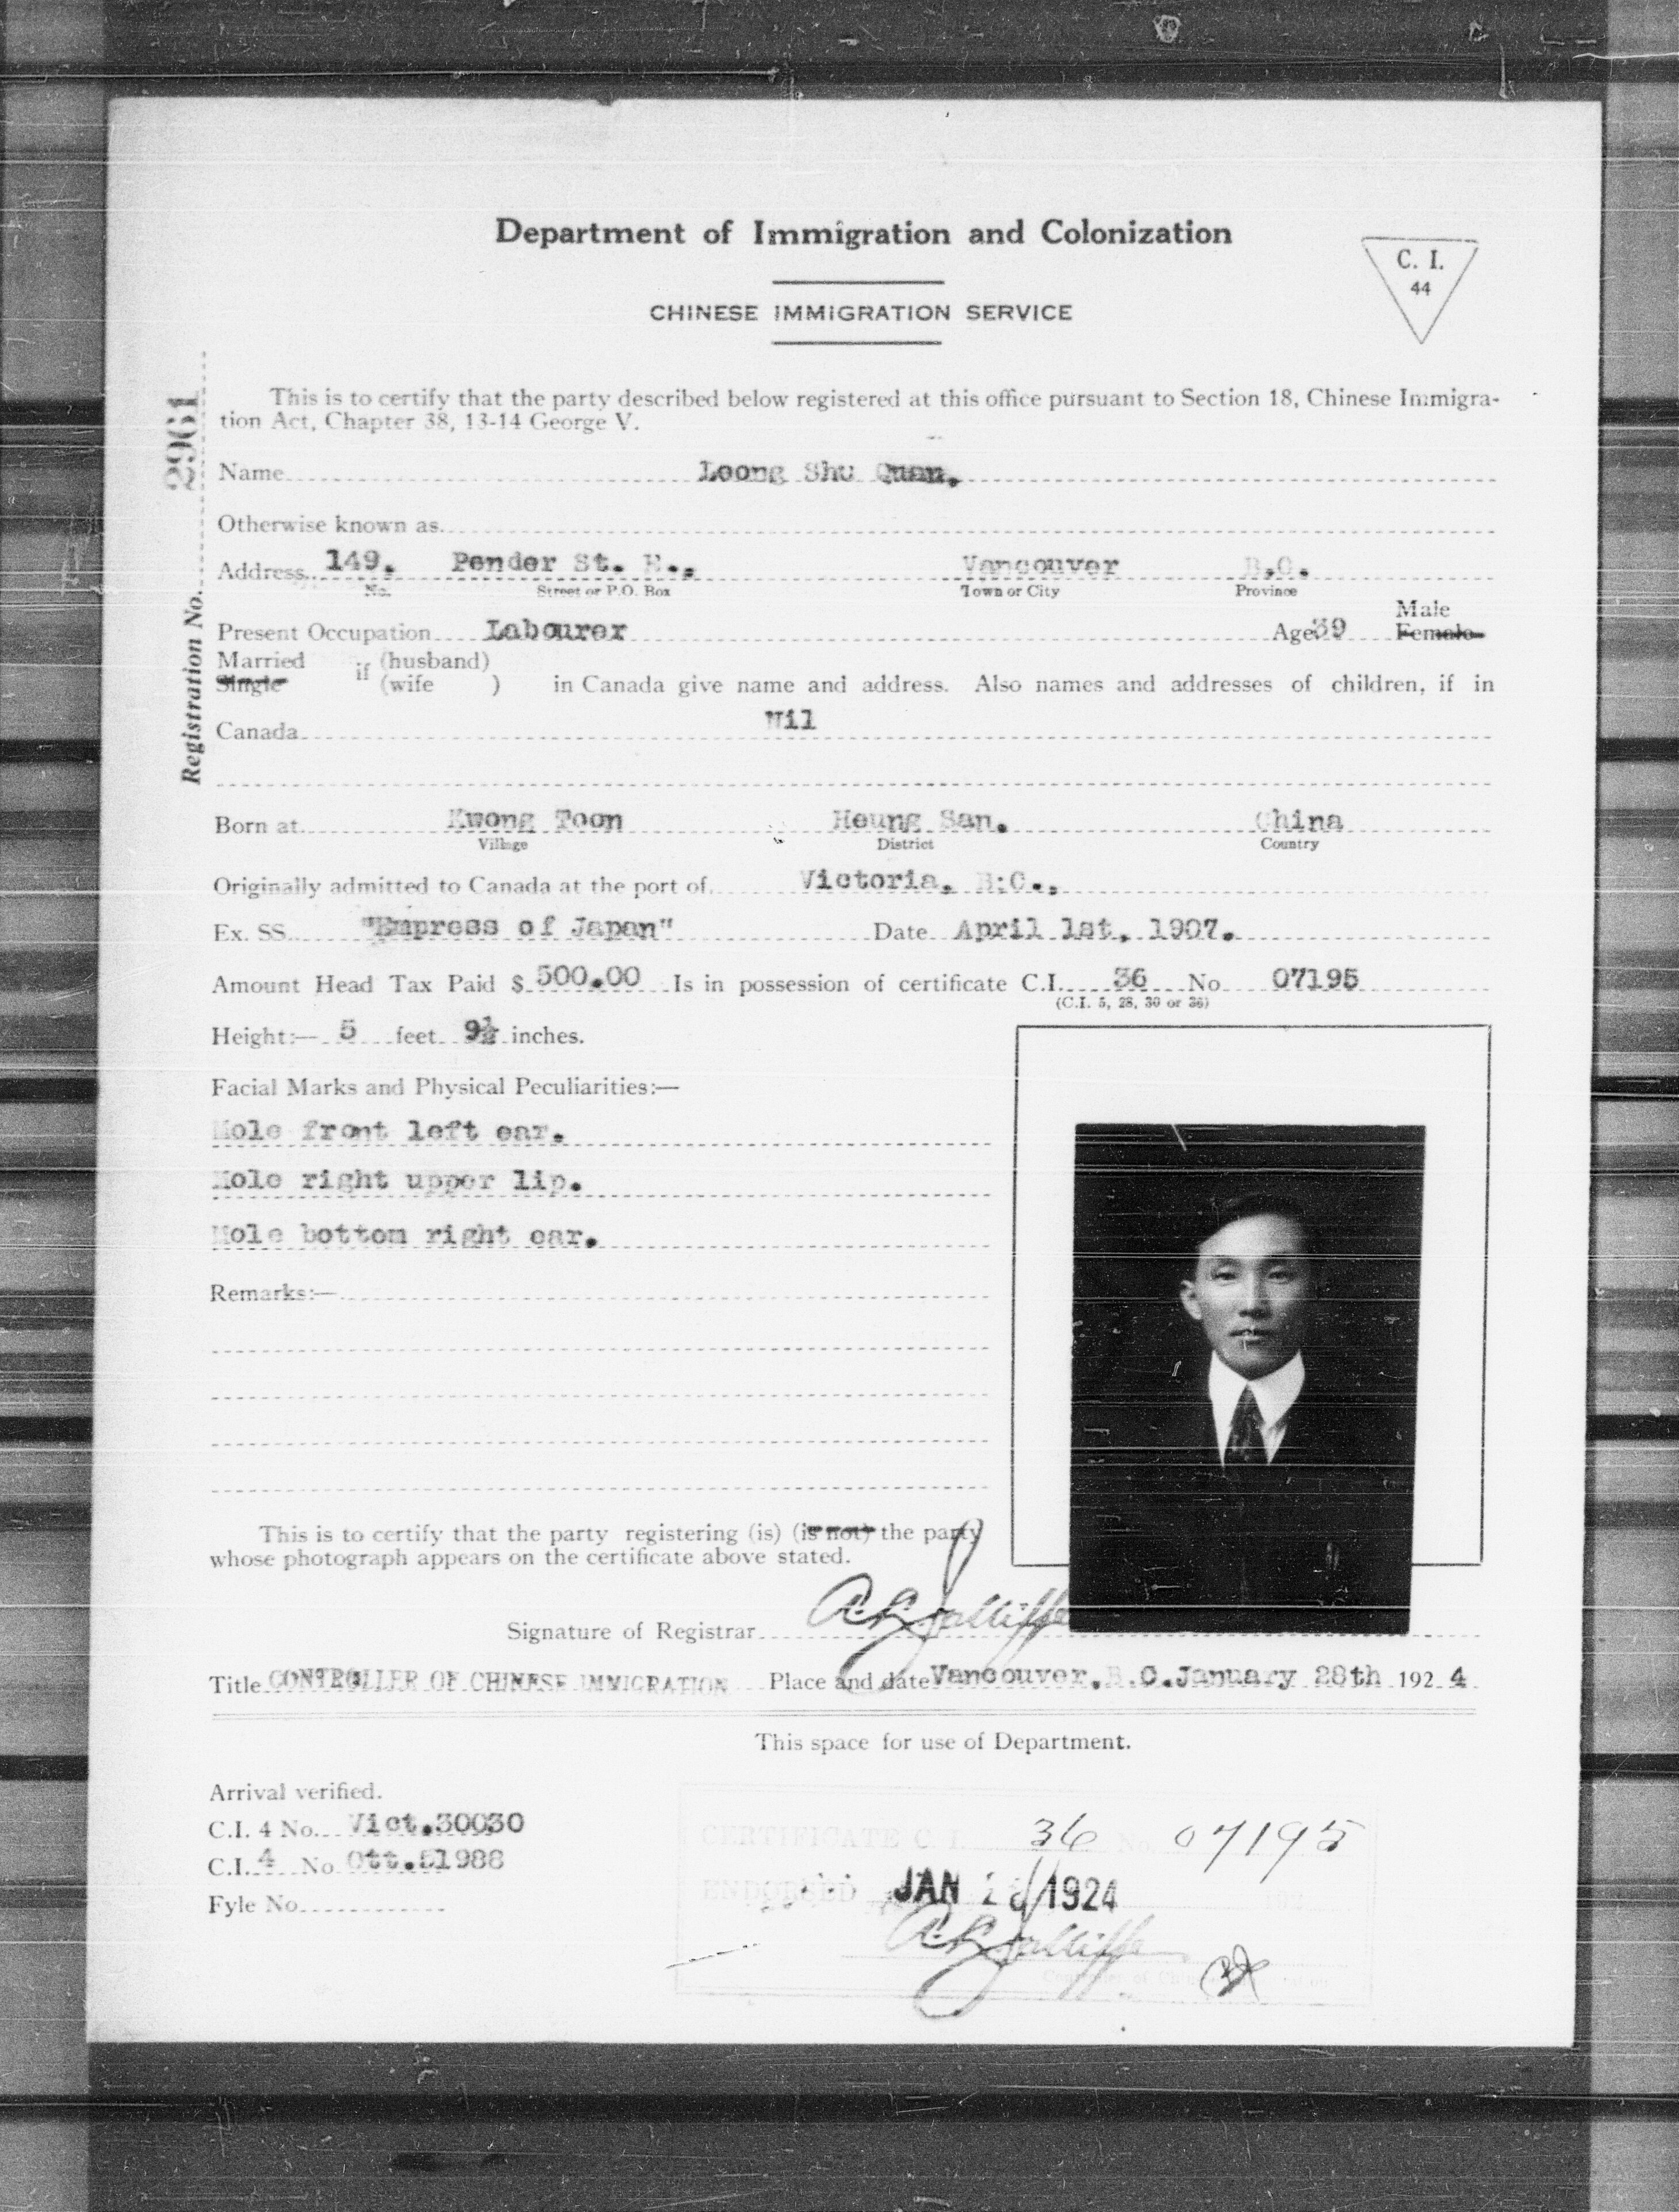 Department of Immigration and Colonization
C. I.
44
CHINESE IMMIGRATION SERVICE
Registration No. 2961
This is to certify that the party described below registered at this office pursuant to Section 18, Chinese Immigra-
tion Act, Chapter 38, 13-14 George V.
Name Loong Shu Quan.
Otherwise known as
Address 149. Pender St. E., Vancouver B.C.
No. Street or P.O. Box Town or City Province
Male
Present Occupation Labourer Age 39 Female
Married if (husband)
Single (wife ) in Canada give name and address. Also names and addresses of children, if in
Canada Nil
Born at Kwong Toon Heung San. China
Village District Country
Originally admitted to Canada at the port of Victoria, B.C.,
Ex. SS. "Empress of Japan" Date April 1st, 1907.
Amount Head Tax Paid $ 500.00 Is in possession of certificate C.I. 36 No 07195
(C.I. 5, 28, 30 or 36)
Height:— 5 feet 9½ inches.
Facial Marks and Physical Peculiarities:—
Mole front left ear.
Mole right upper lip.
Mole bottom right ear.
Remarks:—
This is to certify that the party registering (is) (is not) the party
whose photograph appears on the certificate above stated.
Signature of Registrar A.L. Jolliffe
Title CONTROLLER OF CHINESE IMMIGRATION Place and date Vancouver, B.C. January 28th 192 4
This space for use of Department.
Arrival verified.
C.I. 4 No. Vict.30030
C.I. 4 No Ott.51988
Fyle No.
CERTIFICATE C. I. 36 No. 07195
ENDORSED JAN 28 1924 192
A.L. Jolliffe